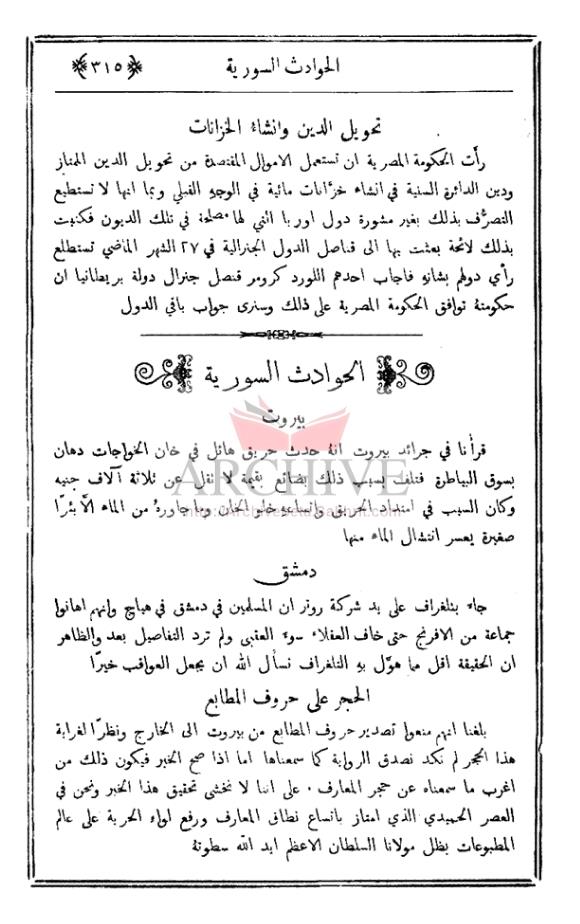 الحوادث السورية
﴿٣١٥﴾
تحويل الدين وانشاء الخزانات
رأت الحكومة المصرية ان تستعمل الاموال المقتصدة من تحويل الدين الممتاز
ودين الدائرة السنية في انشاء خزانات مائية في الوجه القبلي وبما انها لا تستطيع
التصرُّف بذلك بغير مشورة دول اوربا التي لها مصلحة في تلك الديون فكتبت
بذلك لائحة بعثت بها الى قناصل الدول الجنرالية في ٢٧ الشهر الماضي تستطلع
رأي دولهم بشانهِ فاجاب احدهم اللورد كرومر قنصل جنرال دولة بريطانيا ان
حكومتهُ توافق الحكومة المصرية على ذلك وسنرى جواب باقي الدول
الحوادث السورية
بيروت
قرأنا في جرائد بيروت انهُ حدث حريق هائل في خان الخواجات دهان
بسوق البياطرة فتلف بسبب ذلك بضائع بقيمة لا تقل عن ثلاثة آلاف جنيه
ARCHIVE
وكان السبب في امتداد الحريق واتساعهِ خلو الخان وما جاورهُ من الماء الاَّ بئرًا
صغيرة يعسر انتشال الماء منها
دمشق
جاء بتلغراف على يد شركة روتر ان المسلمين في دمشق في هياج وانهم اهانوا
جماعة من الافرنج حتى خاف العقلاء سوء العقبى ولم ترد التفاصيل بعد والظاهر
ان الحقيقة اقل ما هوَّل بهِ التلغراف نسأل الله ان يجعل العواقب خيرًا
الحجر على حروف المطابع
بلغنا انهم منعوا تصدير حروف المطابع من بيروت الى الخارج ونظرًا لغرابة
هذا الحجر لم نكد نصدق الرواية كما سمعناها اما اذا صح الخبر فيكون ذلك من
اغرب ما سمعناه عن حجر المعارف . على اننا لا نخشى تحقيق هذا الخبر ونحن في
العصر الحميدي الذي امتاز باتساع نطاق المعارف ورفع لواء الحرية على عالم
المطبوعات بظل مولانا السلطان الاعظم ايد الله سطوتهُ